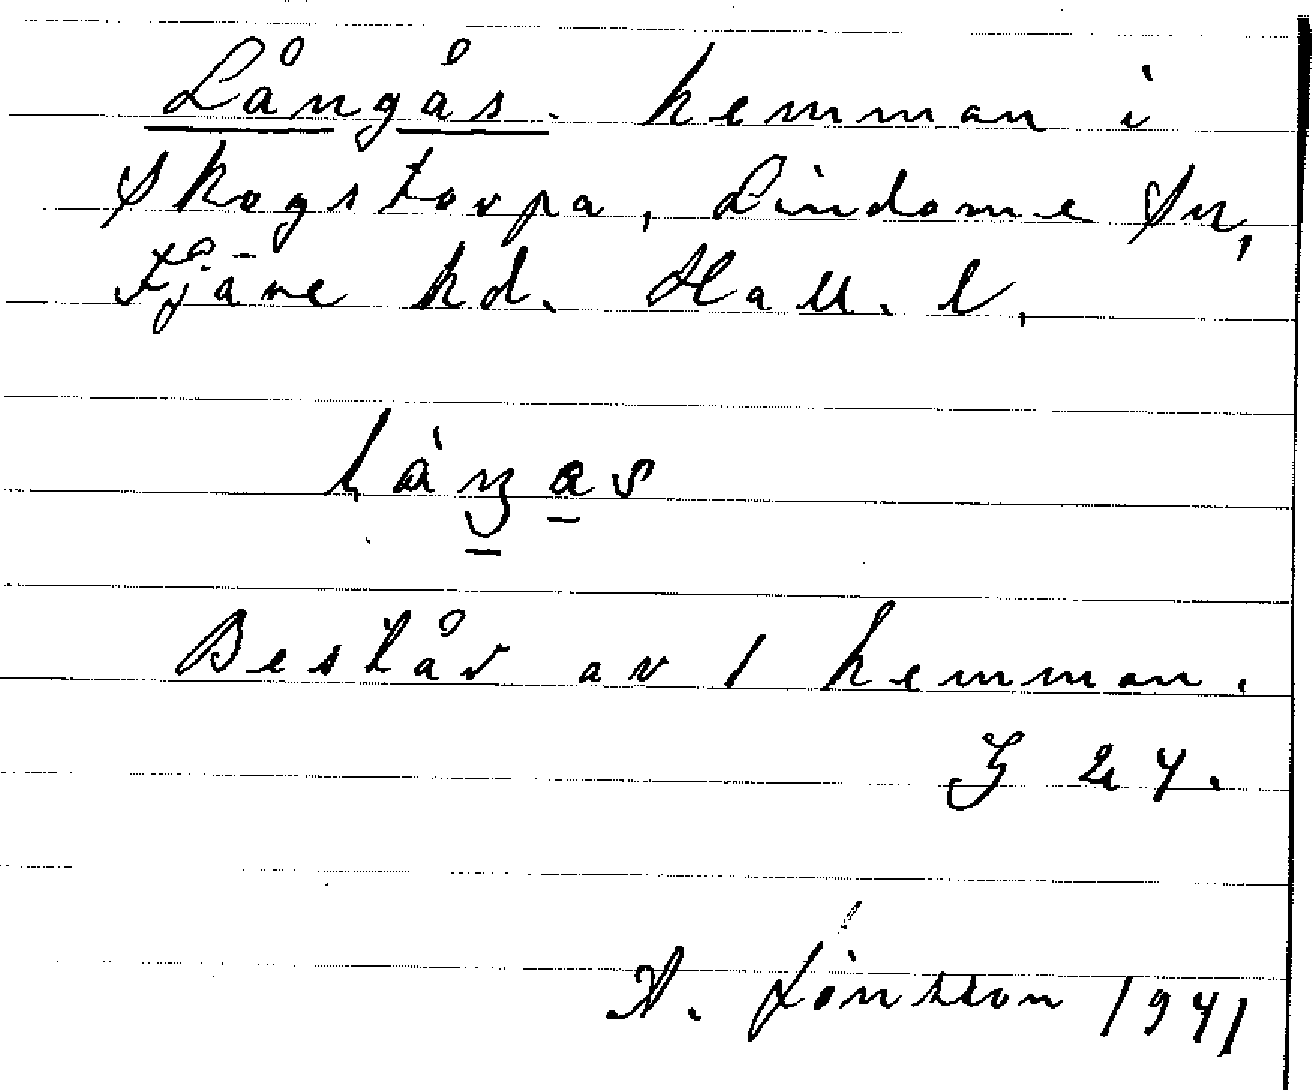 Långås. hemman i
Skogstorpa, Lindome Sn,
Fjäre hd. Hall. l.
Består av 1 hemman.
G 24.
A. Jönsson 1941